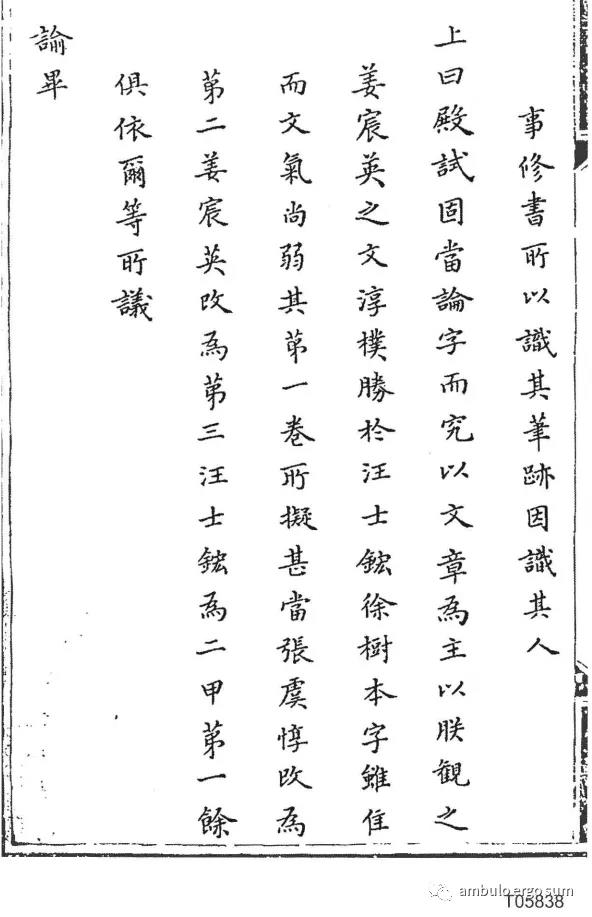 事修書所以識其筆跡因識其人
上曰殿試固當論字而究以文章為主以朕観之
姜宸英之文淳樸勝於汪士鋐徐樹本字雖佳
而文氣尚弱其苐一卷所擬甚當張虞惇改為
苐二姜宸英改為苐三汪士鋐為二甲苐一餘
俱依爾等所議
諭畢
ambulo ergo sum
T05838